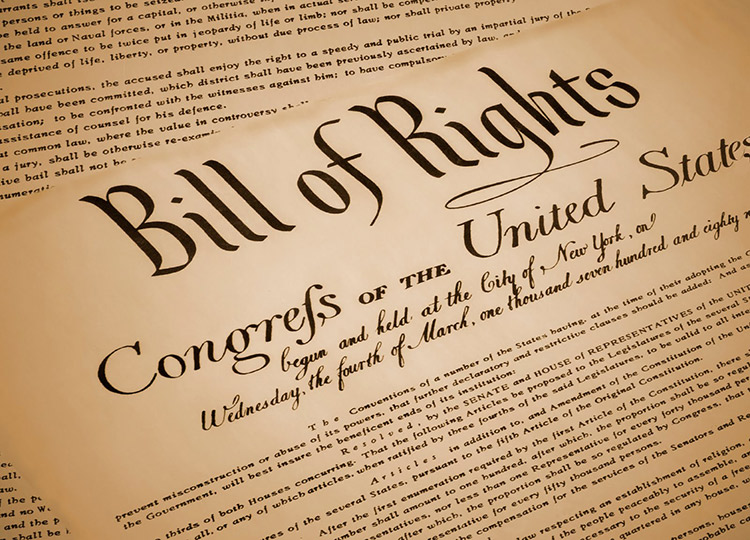 persons or things to be seized
be held to answer for a capital, or otherwise
the land or Naval forces, or in the Militia, when in actual
same offence to be twice put in jeopardy of life or limb; nor shall be
deprived of life, liberty, or property, without due process of law; nor shall private property
prosecutions, the accused shall enjoy the right to a speedy and public trial by an impartial jury of the
have been committed, which district shall have been previously ascertained by law,
to be confronted with the witnesses against him; to have
assistance of counsel for his defence.
at common law, where the value in controversy
a jury, shall be otherwise
bail shall not
Bill of Rights
Congreſs OF THE United States
begun and held at the City of New York, on
Wednesday, the fourth of March, one thousand seven hundred and eighty
The Conventions of a number of the States having, at the time of their adopting the
prevent misconstruction or abuse of its powers, that further declaratory and restrictive clauses should be added: And
the Government, will best insure the beneficent ends of its institution:
Resolved, by the SENATE and HOUSE of REPRESENTATIVES of the
thirds of both Houses concurring, That the following Articles be proposed to the Legislatures of the several
all, or any of which articles, when ratified by three fourths of the said Legislatures, to be valid to all
Articles in addition to, and Amendment of the Constitution of the
of the several States, pursuant to the fifth Article of the Original Constitution.
After the first enumeration required by the first Article of the Constitution, there
number shall amount to one hundred, after which, the proportion shall be so
nor less than one Representative for every forty thousand
the proportion shall be so regulated by Congress, that
for every fifty thousand persons.
the compensation for the services of the Senators and
respecting an establishment of religion,
of the people peaceably to assemble,
necessary to the security of a free
quartered in any house,